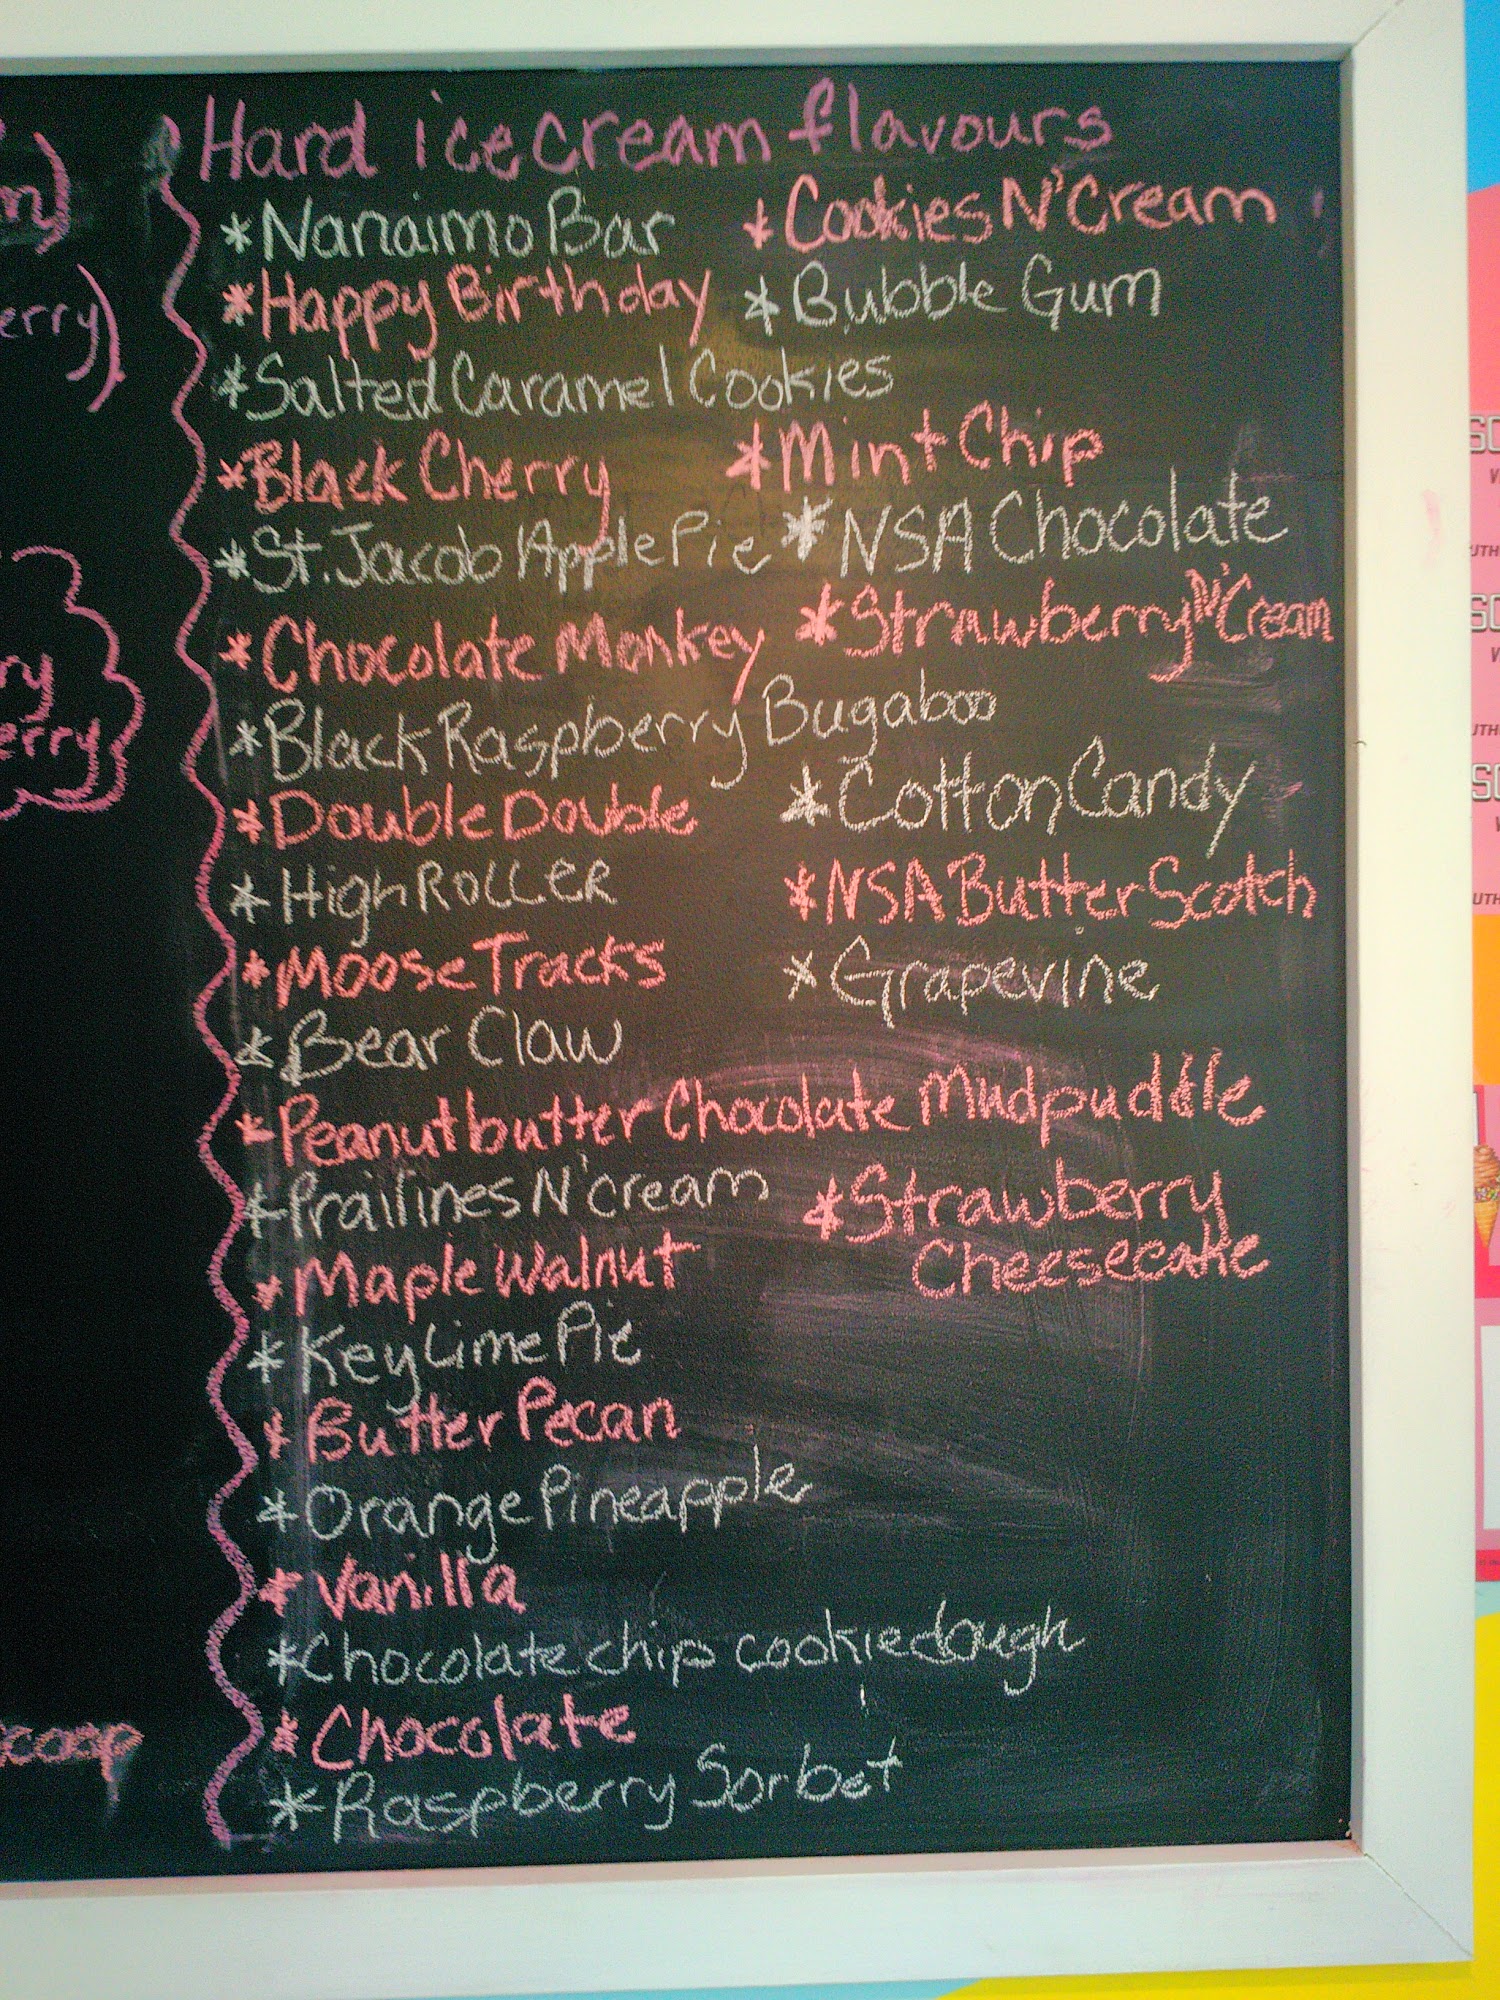 Hard ice cream flavours
*Nanaimo Bar *Cookies N' Cream
*Happy Birthday *Bubble Gum
*Salted Caramel Cookies
*Black Cherry *Mint Chip
*St. Jacob Apple Pie *NSA Chocolate
*Chocolate Monkey *Strawberry N' Cream
*Black Raspberry Bugaboo
*Double Double *Cotton Candy
*High Roller *NSA Butter Scotch
*Moose Tracks *Grapevine
*Bear Claw
*Peanutbutter Chocolate Mudpuddle
*Prailines N' cream *Strawberry
Cheesecake
*Maple Walnut
*Key Lime Pie
*Butter Pecan
*Orange Pineapple
*Vanilla
*Chocolate chip cookie dough
*Chocolate
*Raspberry Sorbet
erry)
ry
erry
scoop